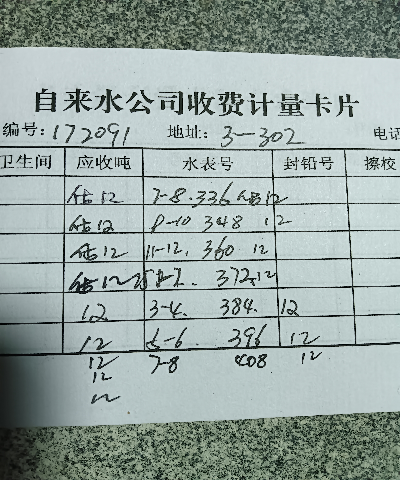 自来水公司收费计量卡片
编号: 172091 地址: 3-302 电话
卫生间 应收吨 水表号 封铅号 擦校
估12 7-8. 336 12
估12 9-10 348 12
估12 11-12. 360 12
估12 372. 12
12 3-4. 384. 12
12 5-6. 396 12
12 7-8 408 12
12
12